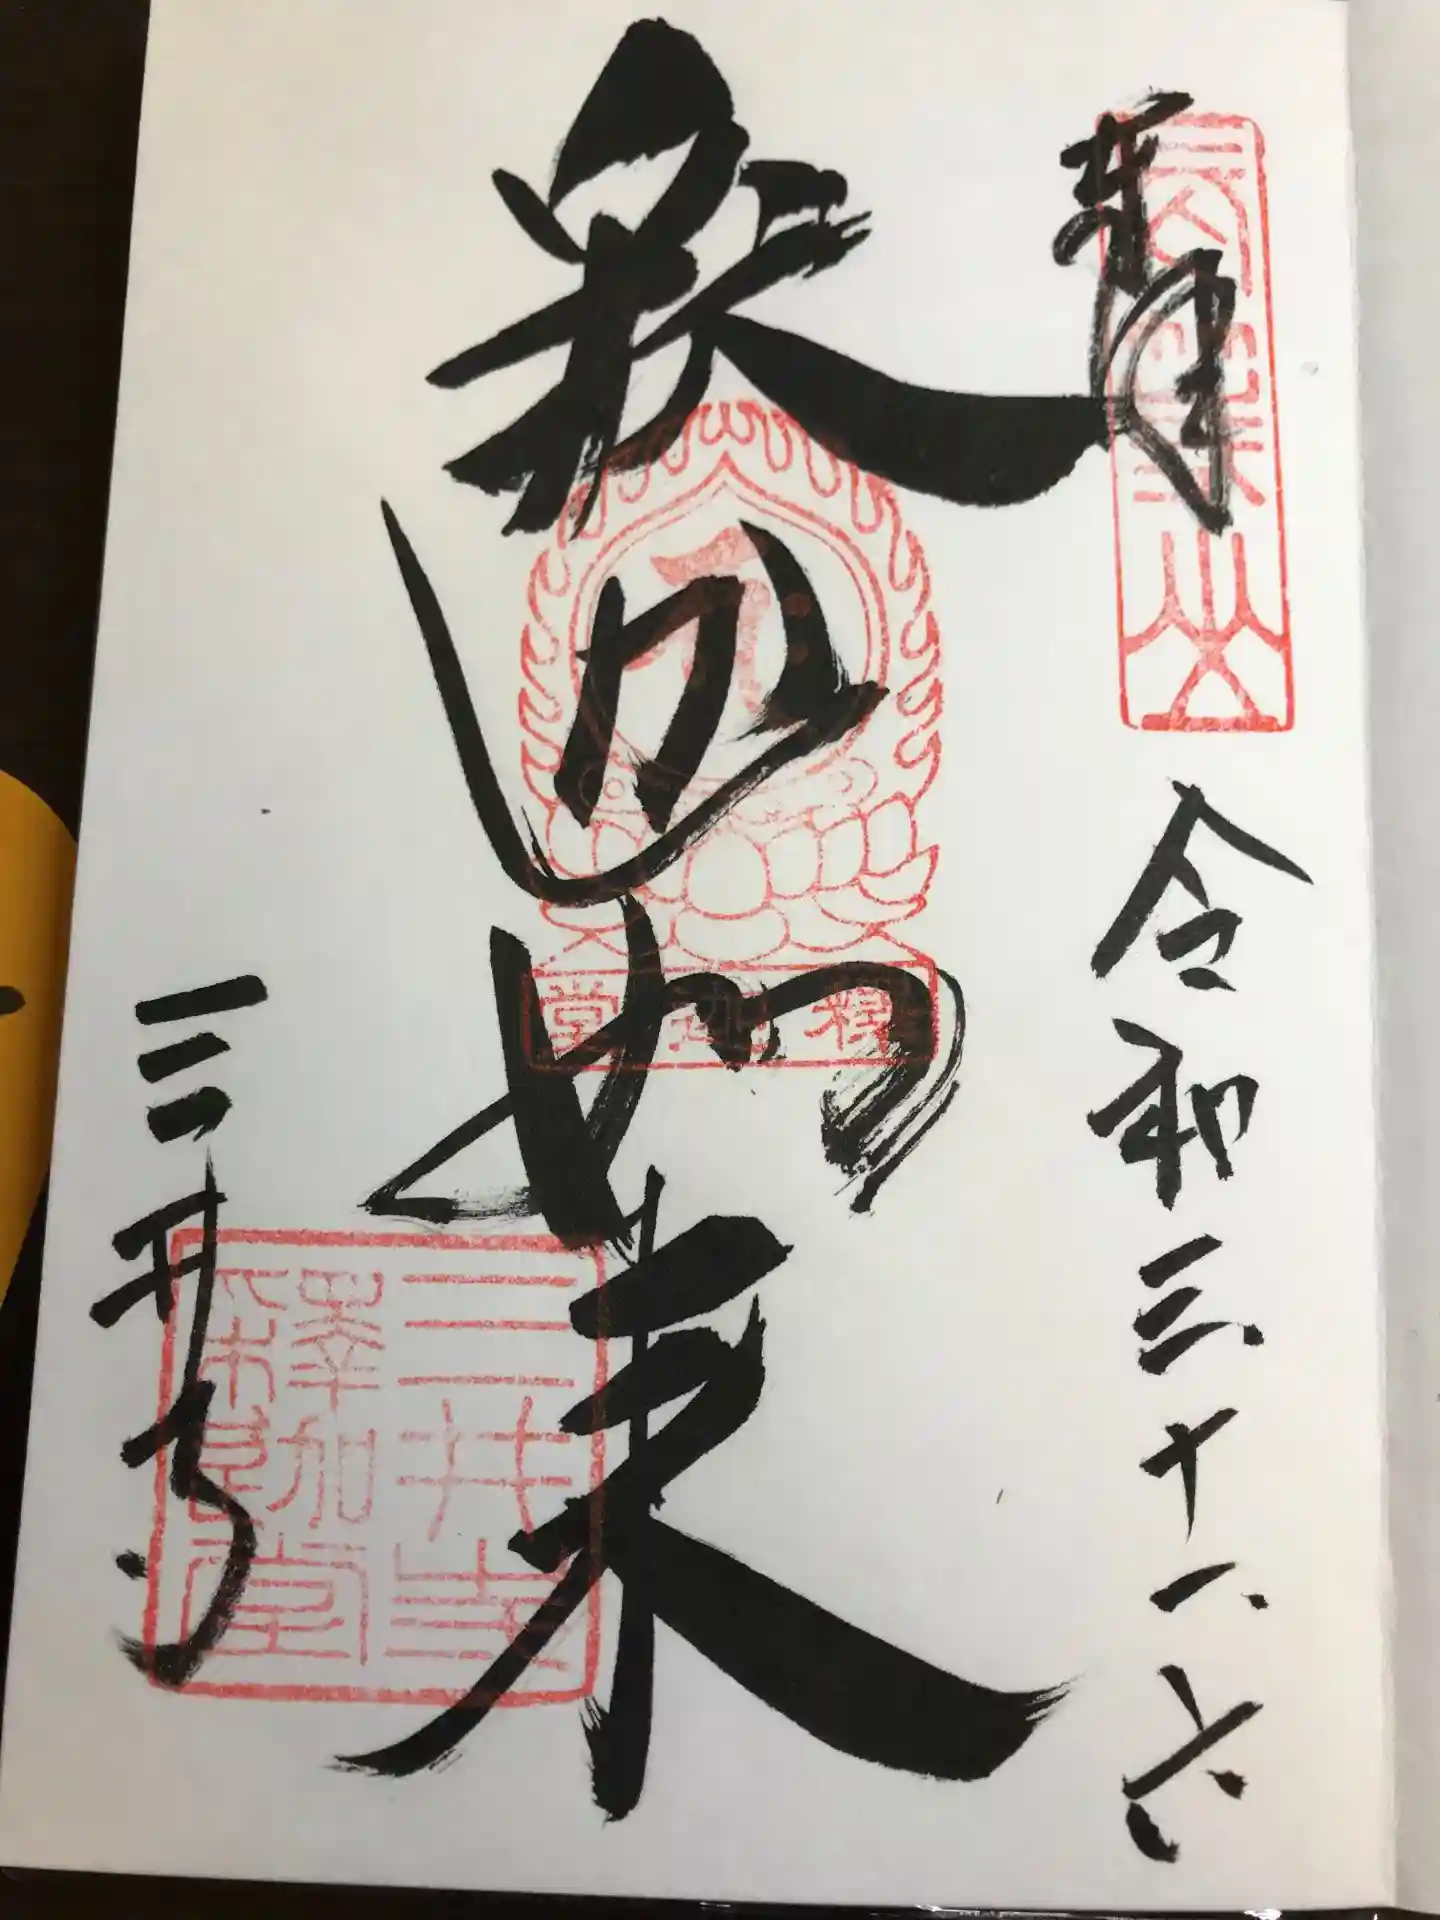 奉拝
長等山
令和三十一六
釈迦如来
釈迦堂
三井寺
三井寺
釋迦
堂